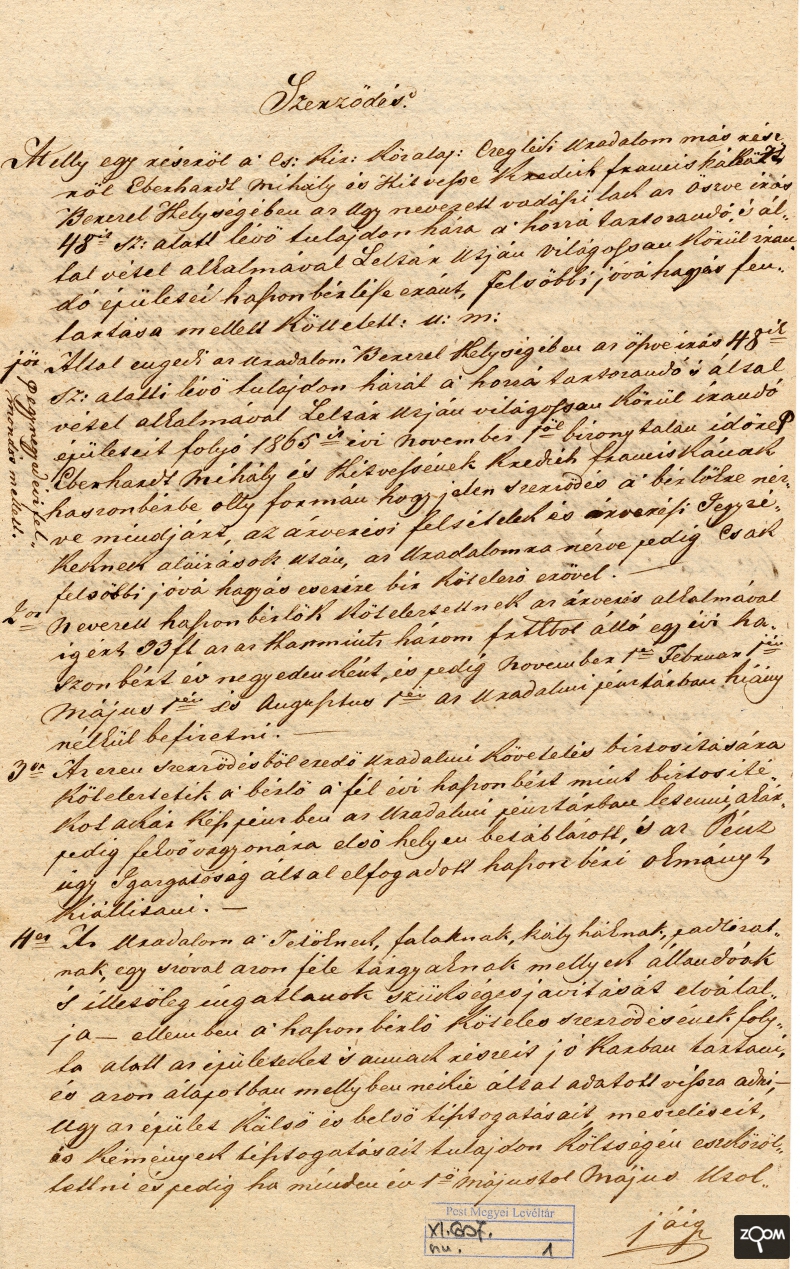 Szerződés.
Melly egy részről a' Cs: Kir: Közalap: Czeglédi Uradalom más rész-
ről Eberhardt Mihály és Hitvesse Kredich Franciska között
Bekerel Helységében az úgy nevezett vadászi lak az össve irás
48ik sz: alatt lévő tulajdon háza a' hozzá tartozandó 's ál-
tal vétel alkalmával Leltár utján világossan körül iran-
dó épületei haszonbérlése eránt, felsőbbi jóváhagyás fen-
tartása mellett köttetett: u: m:
1ör Által engedi az Uradalom Bekerel Helységében az öszve irás 48ik
sz: alatti lévő tulajdon házát a' hozzá tartozandó 's által
vétel alkalmával Leltár utján világossan körül irandó
épületeit folyó 1865ik évi November 1től bizonytalan időre
fegynegyedévi fel-
mondás mellett.
Eberhardt Mihály és Hitvessének Kredich Franciskának
haszonbérbe olly formán hogy jelen szerződés a' bérlőkre néz-
ve mindjárt, az árverési felsételek és árverési Jegyző-
keknek aláirások után, az Uradalomra nézve pedig csak
felsőbbi jóvá hagyás esetére bir kötelező erővel. —
2or Nevezett haszonbérlők köteleztetnek az árverés alkalmával
igért 33 ft azaz Harmintz három frttból álló egy évi ha-
szonbért év negyedenként, és pedig November 1én Februar 1jén
Május 1én és Augusztus 1én az Uradalmi pénztárban hiány
nélkül befizetni. —
3or Az ezen szerződésből eredő Uradalmi követelés biztositására
köteleztetik a' bérlő a' fél évi haszonbért mint biztosité-
kot akár kész pénzben az Uradalmi pénztárban letenni, akár
pedig fekvő vagyonára első helyen betáblázott, 's az Pénz
ügy Igazgatóság által elfogadott haszon béri okmányt
kiállitani. —
4er Az Uradalom a' Tetőknek, falaknak, kályháknak, padlózat-
nak, egy szóval azon féle tárgyaknak mellyek állandóak
's illetőleg ingatlanok szükséges javitását elválal-
ja — ellemben a' haszonbérlő köteles szerződésének foly-
ta alatt az épületeket 's annak részeit jó karban tartani,
és azon álapotban mellyben nékie által adatott vissza adni, —
Ugy az épület külső és belső tisztogatásait, meszeléseit,
és kémények tisztogatásait tulajdon költségén eszközöl-
tettni és pedig ha minden év 1ő májustol Május utol-
jáig
Pest Megyei Levéltár
XI. 607.
nu. 1
ZOOM